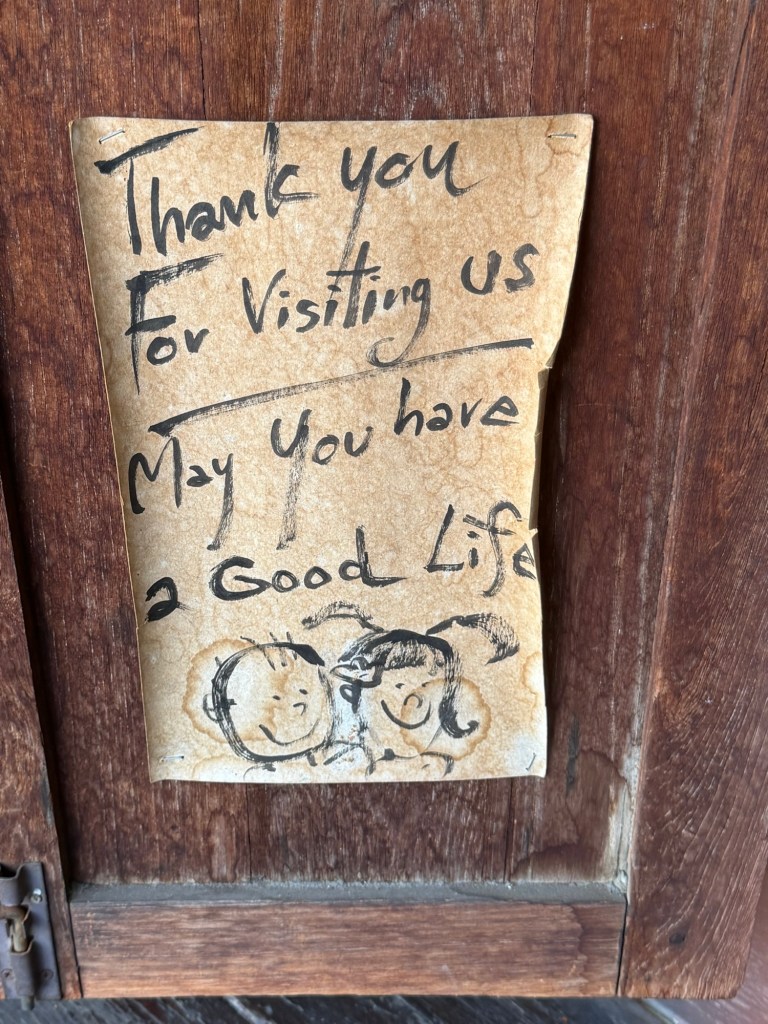 Thank you
For Visiting us
May you have
a Good Life